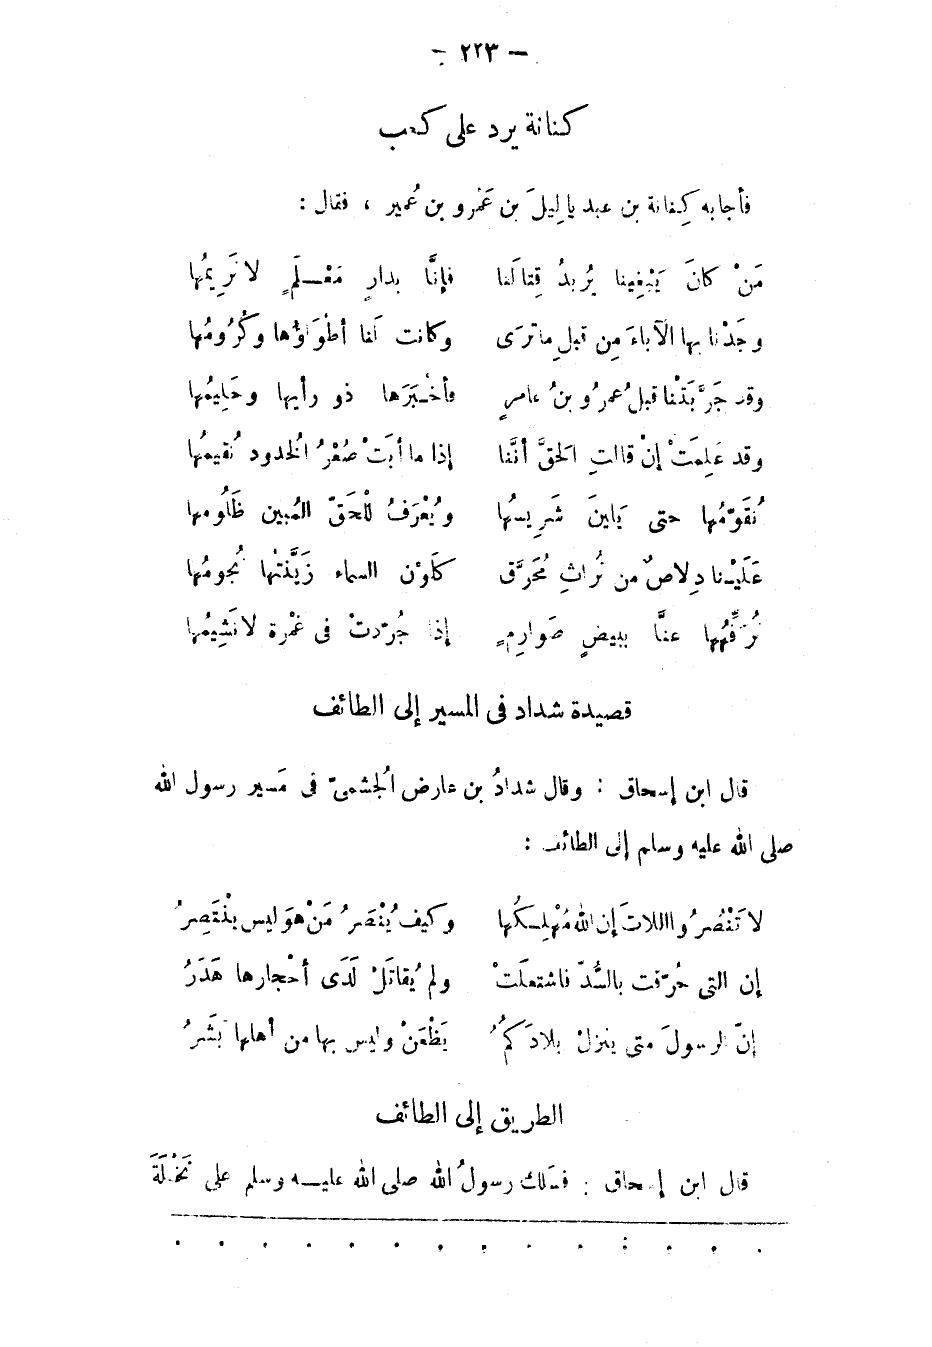 — ٢٢٣ —
كنانة يرد على كعب
فأجابه كِنانة بن عبد ياليلَ بن عَمْرو بن عُمير ، فقال :
مَنْ كانَ يَبْغِينا يُريدُ قِتالَنا فإنَّا بدارٍ مَعْـلَمٍ لا نَرِيمُها
وجَدْنا بها الآباءَ مِن قبلِ ماتَرَى وكانت لَنا أطْوَاؤُها وكُرُومُها
وقد جَرَّبَتْنا قبلُ عمرُو بنُ عامرٍ فأخْـبَرَها ذو رأيِها وحَلِيمُها
وقد عَلِمَتْ إنْ قالتِ الحَقَّ أنَّنا إذا ما أبَتْ صُعْرُ الخُدود نُقيمُها
نُقَوّمُها حتى يَلينَ شَرِيسُها ويُعْرَفُ للْحَقّ المُبين ظَلُومها
عَلَيْـنا دِلاصٌ من تُراثِ مُحَرَّق كلَوْن السماء زَيَّنَتْها نُجومُها
نُرَفِّهُها عنَّا ببيضٍ صَوارِمٍ إذا جُرّدتْ فى غَمْرة لا نَشِيمُها
قصيدة شداد فى المسير إلى الطائف
قال ابن إسحاق : وقال شدادُ بن عارض الجُشمىّ فى مَسير رسول الله
صلى الله عليه وسلم إلى الطائف :
لا تَنْصُرُوا اللاتَ إن الله مُهْلِـكُها وكيف يُنْصَرُ مَنْ هوَ ليس يَنْتَصِرُ
إن التى حُرّقت بالسُّدّ فاشتعلَتْ ولم يُقاتَلْ لَدَى أحْجارها هَدَرُ
إنّ الرسولَ متى ينزلْ بلادَكُمُ يَظْعَنْ وليس بها من أهلها بَشَرُ
الطريق إلى الطائف
قال ابن إسحاق : فسَلك رسولُ الله صلى الله عليـه وسلم على نَخْـلَةَ